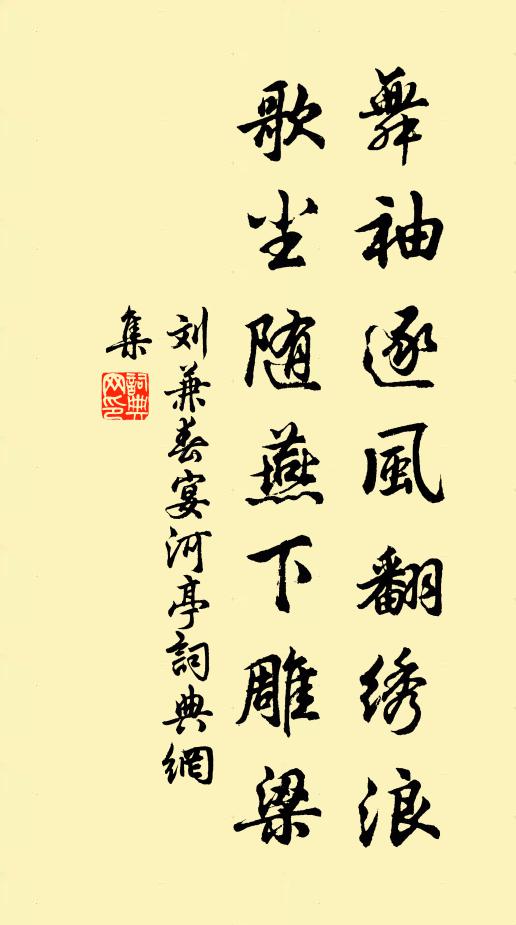 舞袖逐風翻绣浪
歌尘随燕下雕梁
刘兼春宴河亭詞典網
集
詞典
网印